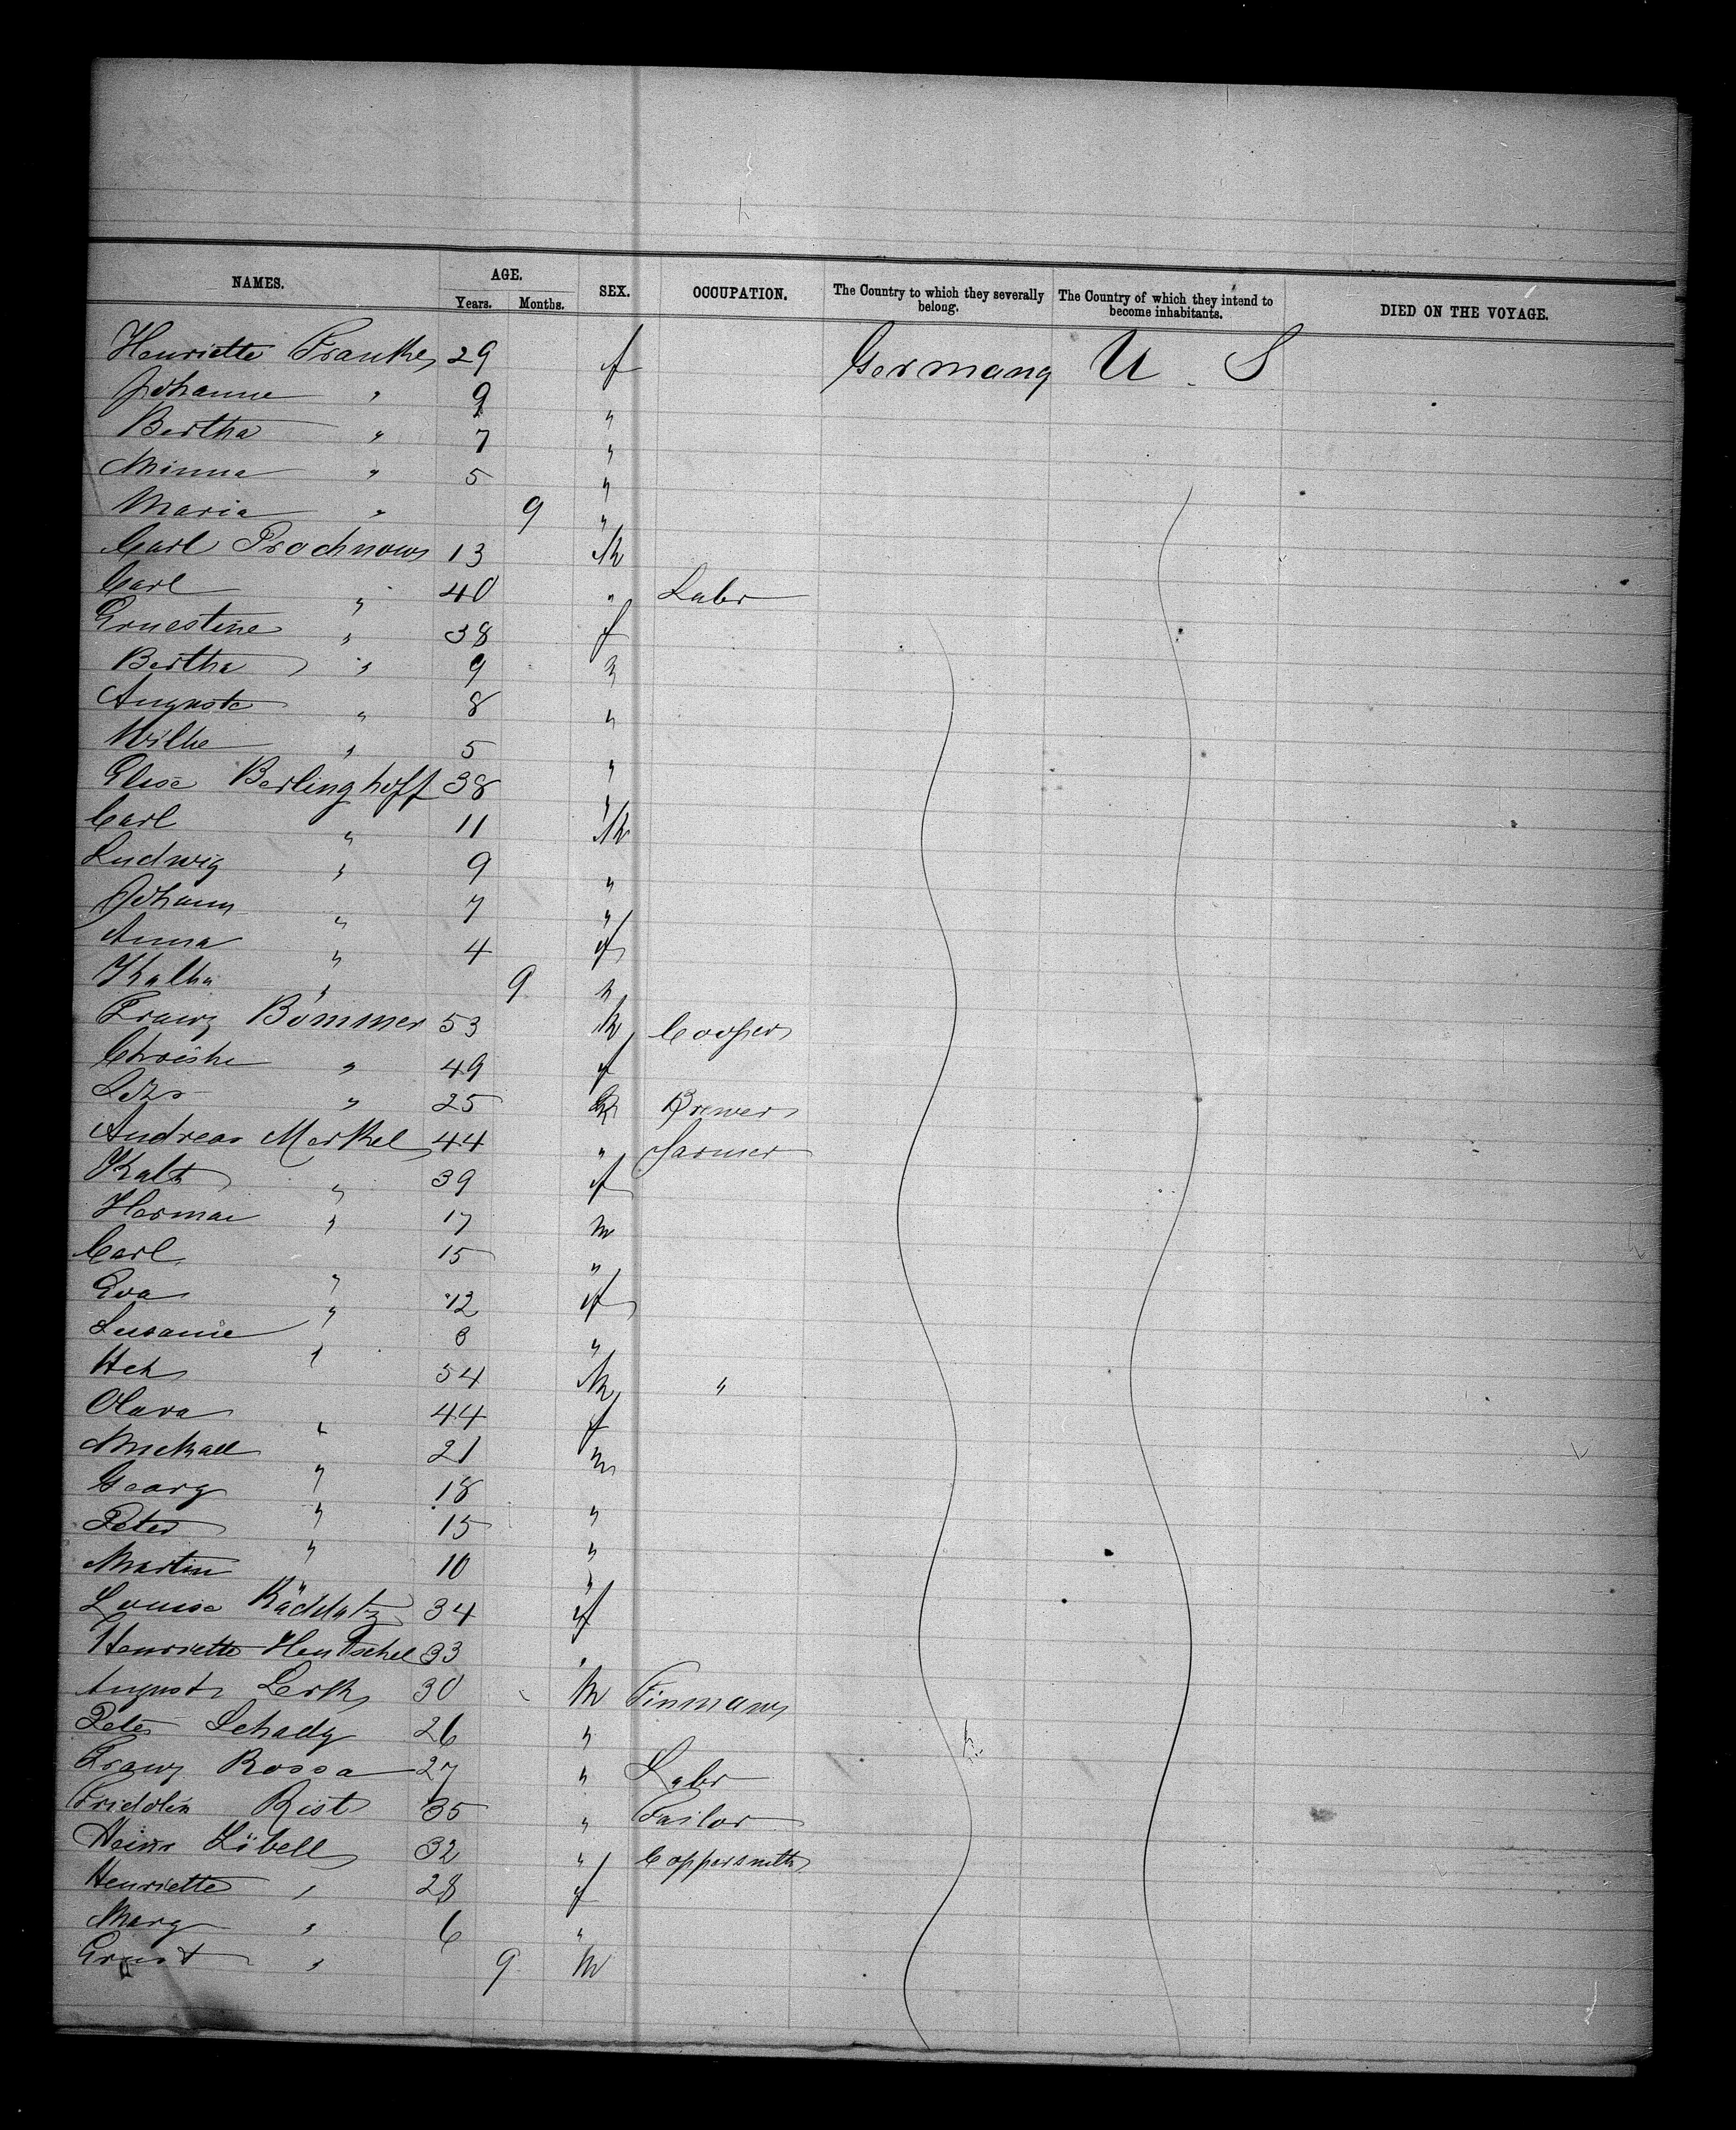 NAMES. AGE. SEX. OCCUPATION. The Country to which they severally belong. The Country of which they intend to become inhabitants. DIED ON THE VOYAGE.
Years. Months.
Henriette Franke 29 f Germany U. S
Johanne " 9 "
Bertha " 7 "
Minna " 5 "
Maria " 9 "
Carl Prochnow 13 M
Carl " 40 " Labr
Ernestine " 38 f
Bertha " 9 "
Auguste " 8 "
Wilhe " 5 "
Elise Berlinghoff 38 "
Carl " 11 M
Ludwig " 9 "
Johann " 7 "
Anna " 4 f
Kathe " 9 "
Franz Bömmer 53 M Cooper
Christne " 49 f
" 25 M Brewer
Andreas Merkel 44 " Farmer
Kath " 39 f
Herman " 17 m
Carl " 15 "
Eva " 12 f
Susanne " 8 "
Hch " 54 M "
Clara " 44 f
Michael " 21 m
Georg " 18 "
Peter " 15 "
Martin " 10 "
Louise Räddatz 34 f
Henriette Hentschel 33 "
August Lerk 30 M Tinman
Peter Schady 26 "
Franz Rossa 27 " Labr
Fridolin Rist 35 " Tailor
Heinr Löbell 32 " Coppersmith
Henriette " 28 f
Marg " 6 "
Ernst " 9 M